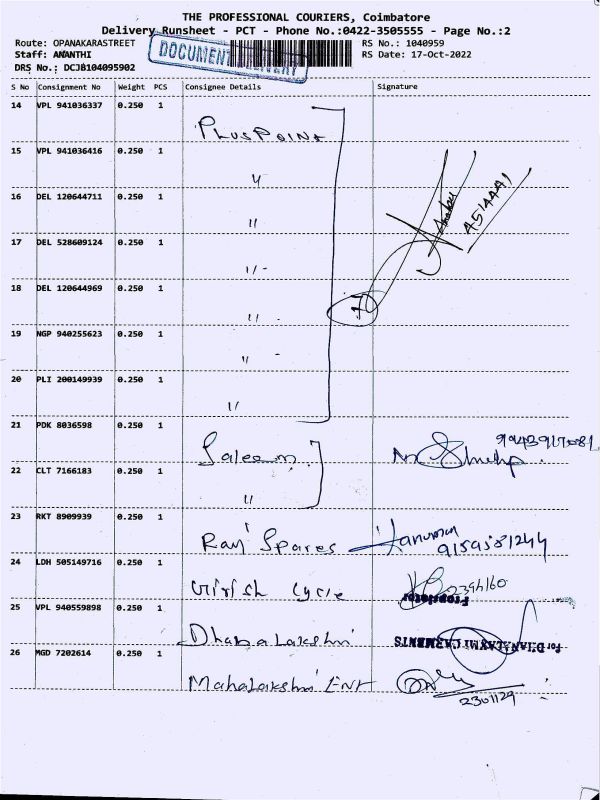 THE PROFESSIONAL COURIERS, Coimbatore
Delivery Runsheet - PCT - Phone No.:0422-3505555 - Page No.:2
Route: OPANAKARASTREET
RS No.: 1040959
Staff: ANANTHI
RS Date: 17-Oct-2022
DRS No.: DCJB104095902
DOCUMENT DELIVERY
S No Consignment No Weight PCS Consignee Details Signature
14 VPL 941036337 0.250 1 PLUSPOINT
15 VPL 941036416 0.250 1 "
16 DEL 120644711 0.250 1 "
17 DEL 528609124 0.250 1 "
18 DEL 120644969 0.250 1 "
19 NGP 940255623 0.250 1 "
20 PLI 200149939 0.250 1 "
21 PDK 8036598 0.250 1 Saleem
22 CLT 7166183 0.250 1 "
23 RKT 8909939 0.250 1 Ravi Spares Hanuman
9159581244
24 LDH 505149716 0.250 1 Girish Cycle 2394160
Proprietor
25 VPL 940559898 0.250 1 Dhanalakshmi For DHANALAXMI GARMENTS
26 MGD 7202614 0.250 1 Mahalakshmi Ent
2301129